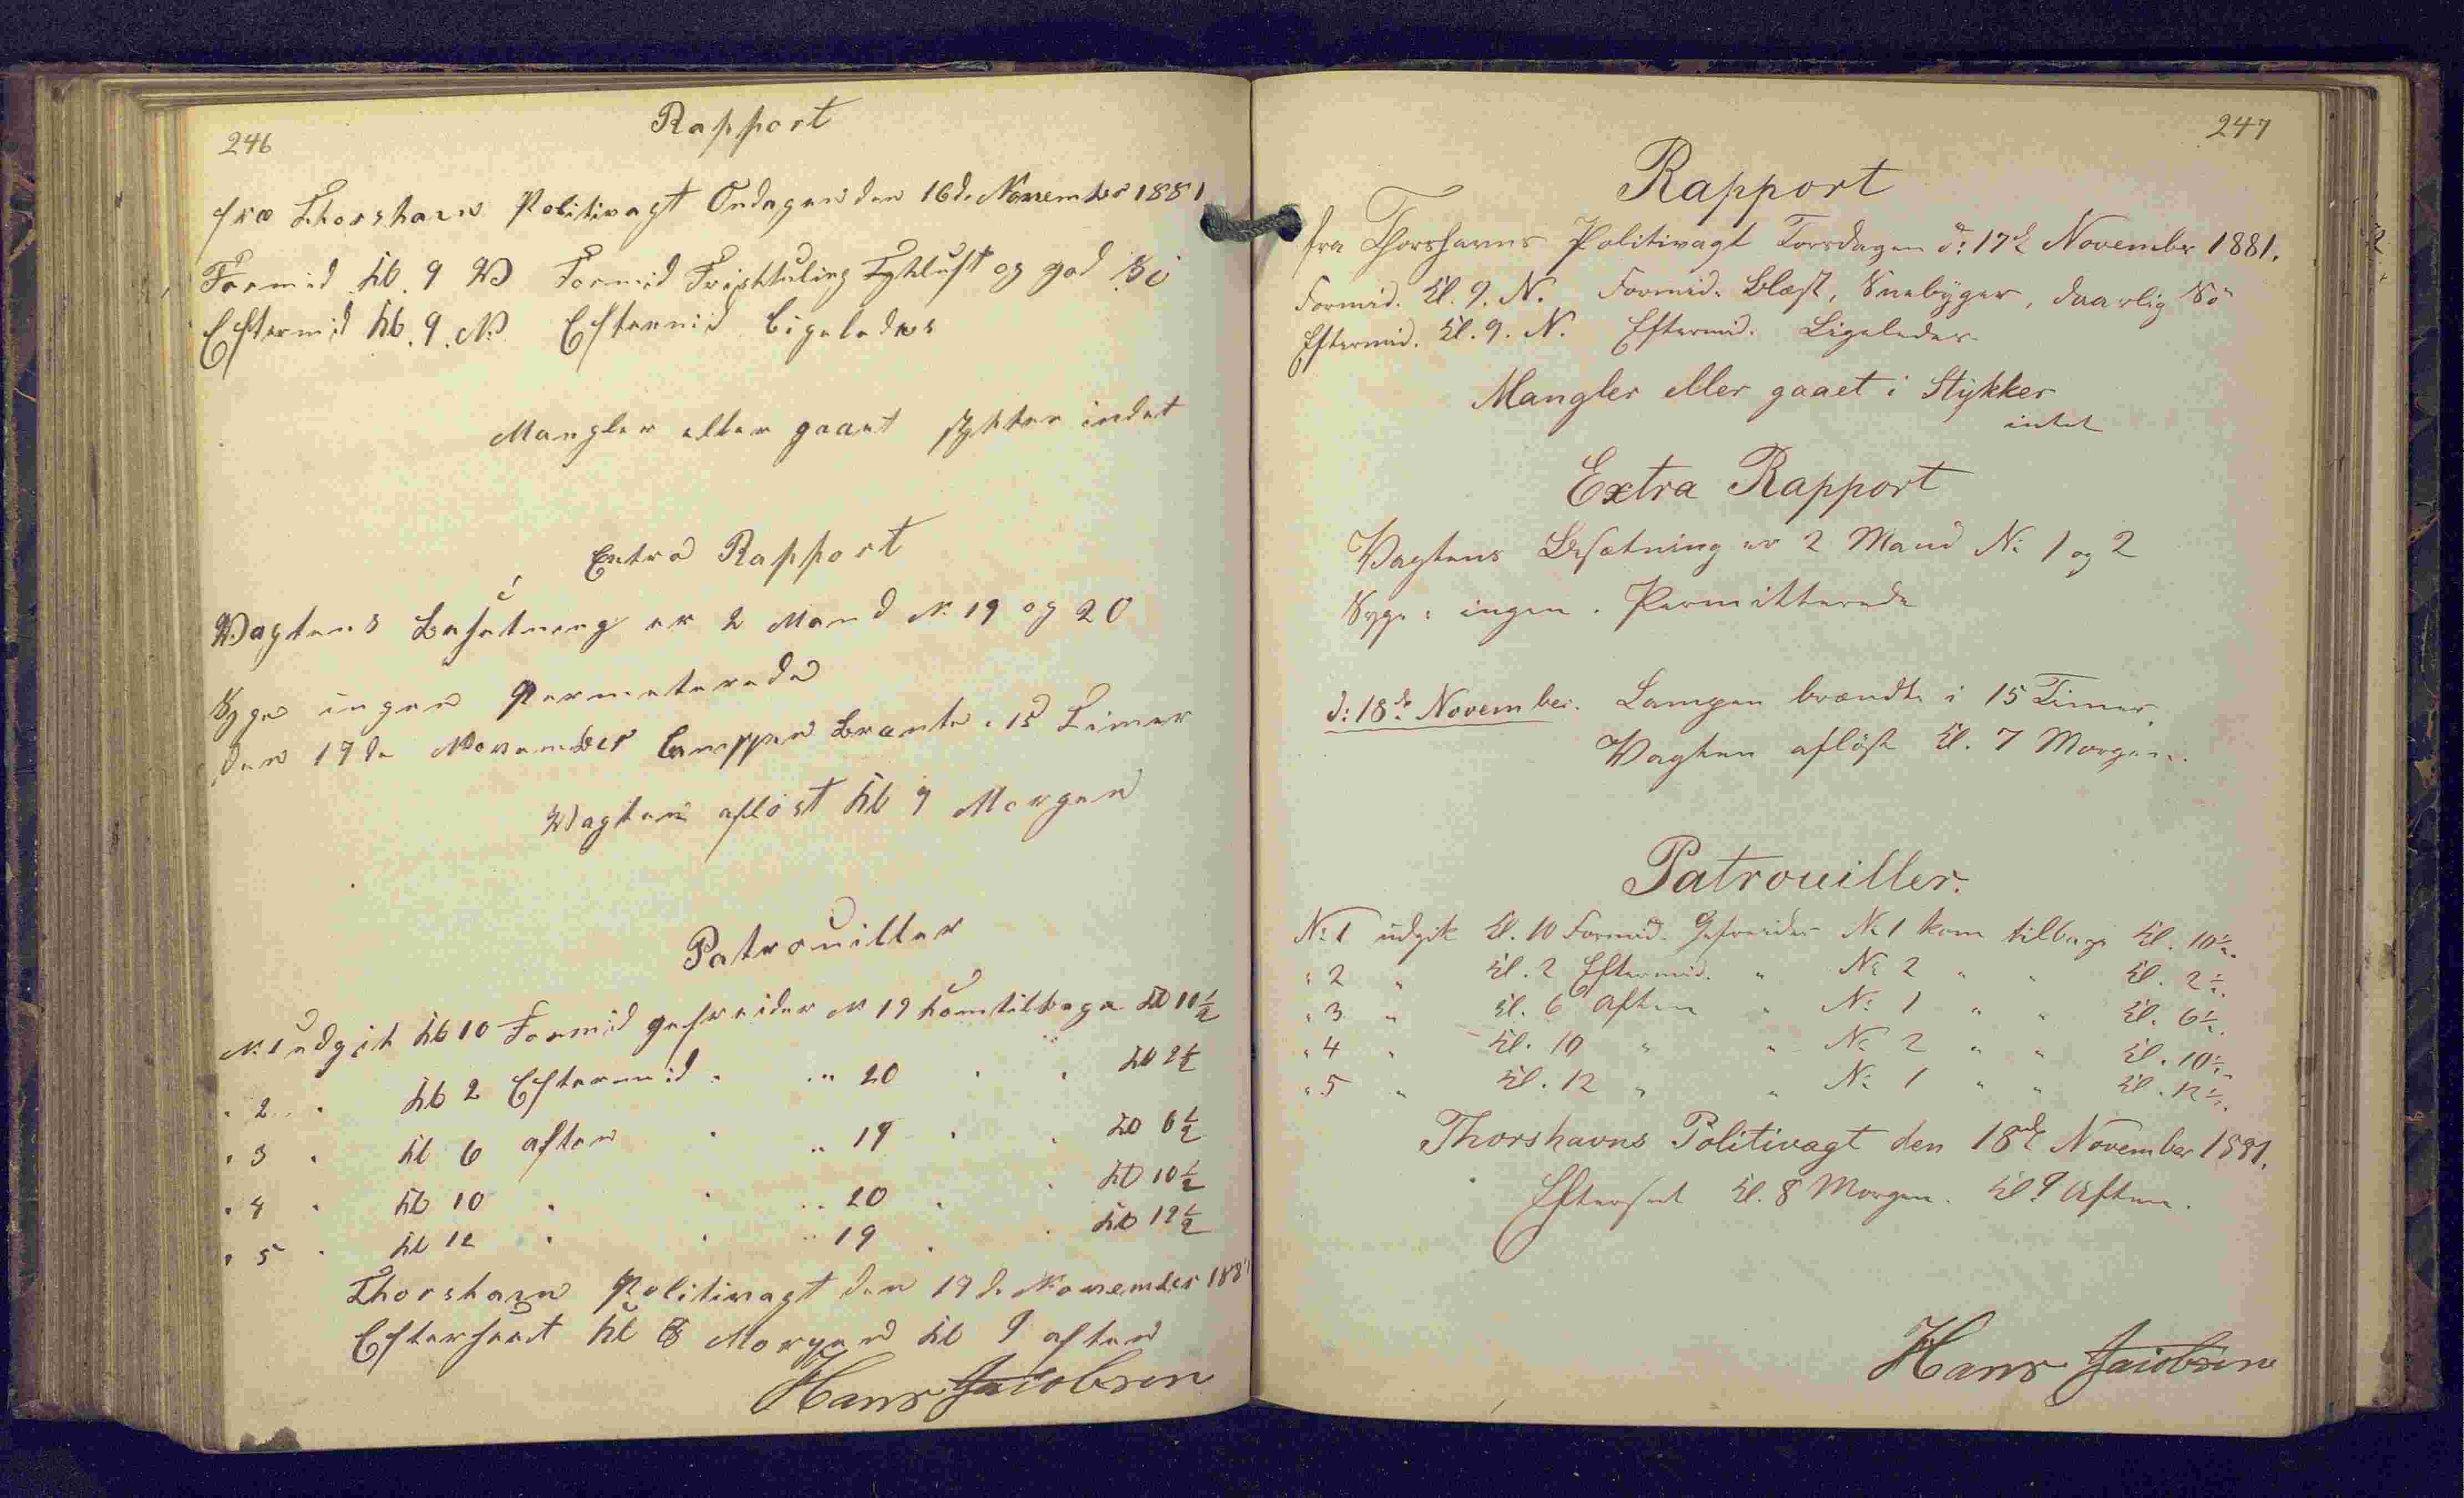 246
Rapport
fra Thorshavn Politivagt Ondagen den 16de November 1881
Formid Kl. 9 N Formid Friskkuling Tykluft og god Sö
Eftermid Kl. 9. N. Eftermid Ligeledes
Mangler eller gaaet stykker indet
Extra Rapport
Wagtens Besetning er 2 Mand No 19 og 20
Syge ingen Permeterede
den 17de November Lamppen Brante i 15 Timer
Wagten aflöst Kl 7 Morgen
Patrouiller
No 1 udgik Kl 10 Formid gefreider No 19 kom tilbage Kl 10½
" 2 " Kl 2 Eftermid " " 20 " " Kl 2½
" 3 " Kl 6 aften " " 19 " " Kl 6½
" 4 " Kl 10 " " " 20 " " Kl 10½
" 5 " Kl 12 " " " 19 " " Kl 12½
Thorshavn Politivagt den 17de November 1881
Efterseet Kl 8 Morgen Kl 9 aften
Hans Jacobsen
247
Rapport
fra Thorshavns Politivagt Torsdagen d: 17de November 1881.
Formid. Kl. 9. N. Formid. Blæst, Snebyger, daarlig Sö
Eftermid. Kl. 9. N. Eftermid. Ligeledes
Mangler eller gaaet i Stykker
intet
Extra Rapport
Vagtens Besætning er 2 Mand No 1 og 2
Syge: ingen. Permitterede
d: 18de November. Lampen brændte i 15 Timer,
Vagten aflöst Kl. 7 Morgen.
Patrouiller.
No 1 udgik Kl. 10 Formid. Gefreider No 1 kom tilbage Kl. 10½.
" 2 " Kl. 2 Eftermid. " No 2 " " Kl. 2½.
" 3 " Kl. 6 Aften " No 1 " " Kl. 6½.
" 4 " Kl. 10 " " No 2 " " Kl. 10½.
" 5 " Kl. 12 " " No 1 " " Kl. 12½.
Thorshavns Politivagt den 18de November 1881.
Efterset Kl. 8 Morgen. Kl 9 Aften.
Hans Jacobsen